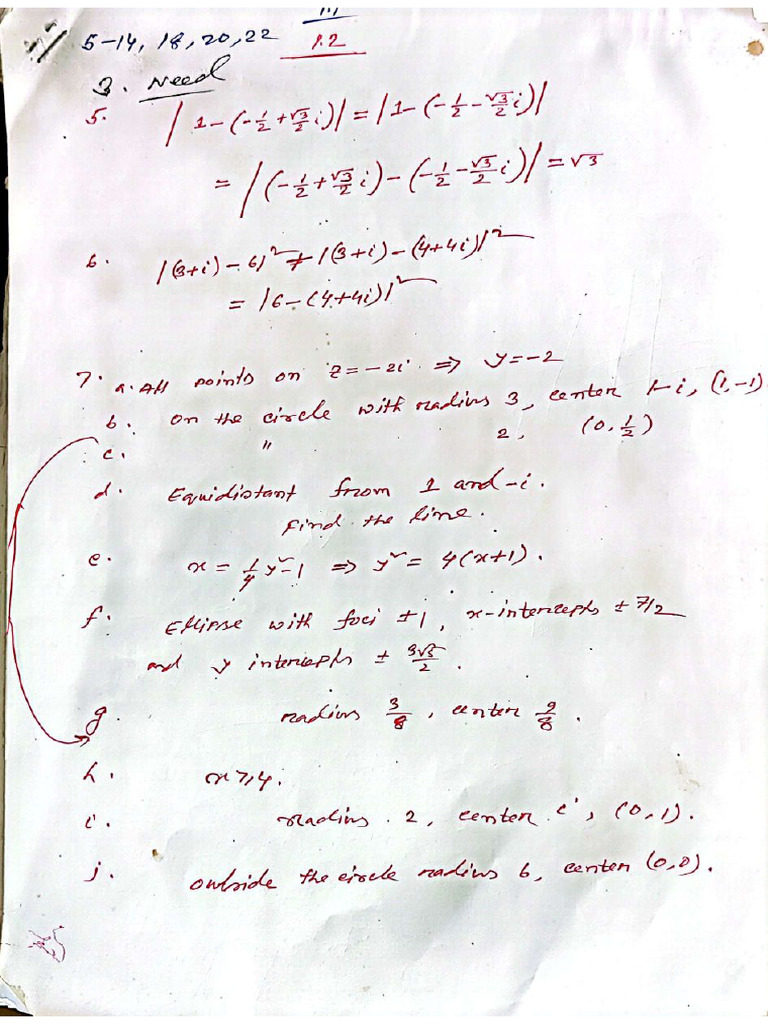 1.1
5-14, 18, 20, 22 1.2
3. Need
5. |1-(-1/2+√3/2 i)| = |1-(-1/2-√3/2 i)|
= |(-1/2+√3/2 i)-(-1/2-√3/2 i)| = √3
6. |(3+i)-6|² ≠ |(3+i)-(4+4i)|²
= |6-(4+4i)|²
7. a. All points on z=-2i ⇒ y=-2
b. on the circle with radius 3, center 1-i, (1,-1)
c. " 2, (0, 1/2)
d. Equidistant from 1 and -i.
Find the line.
e. x = 1/4 y²-1 ⇒ y² = 4(x+1).
f. Ellipse with foci ±1, x-intercepts ± 7/2
and y intercepts ± 3√5/2.
g. radius 3/8, center 9/8.
h. x ≥ 4.
i. radius 2, center i, (0,1).
j. outside the circle radius 6, center (0,0).